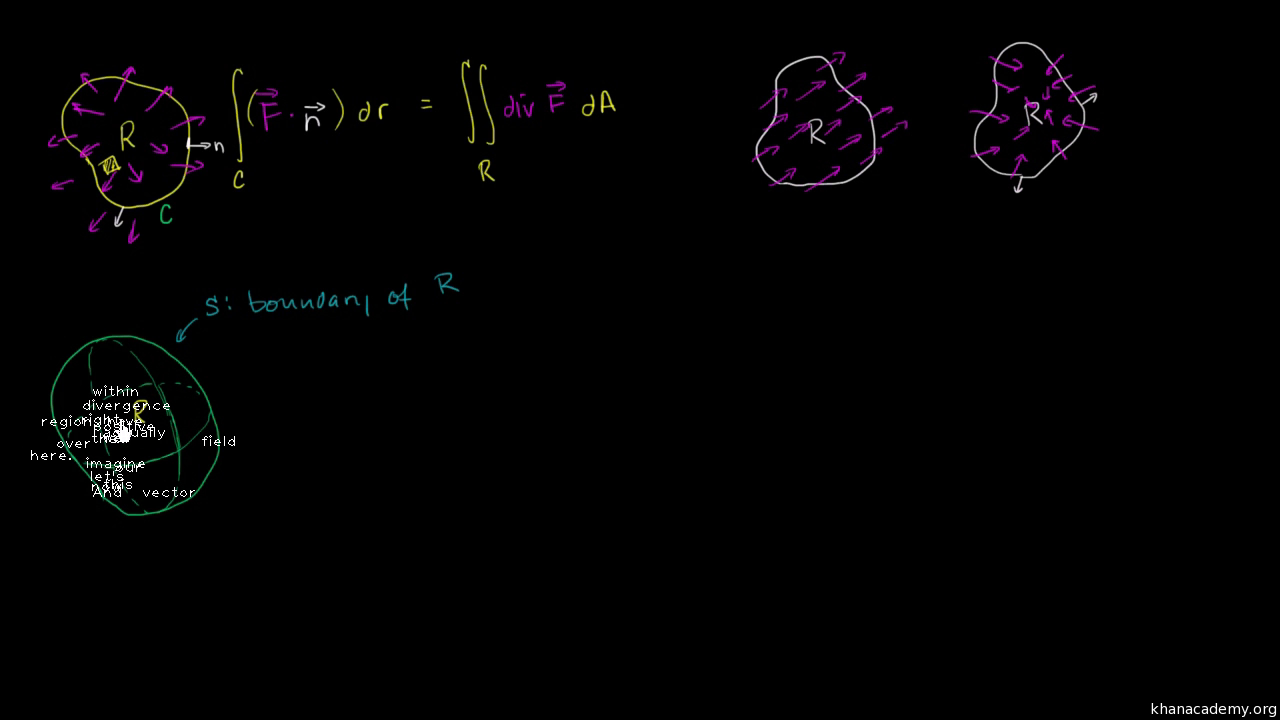 R
n
C
∫_C (F⃗ · n⃗) dr = ∬_R div F⃗ dA
R
R
S: boundary of R
R
within
divergence
region
right
positive
actually
over
the
field
here.
imagine
our
let's
this
And
vector
khanacademy.org